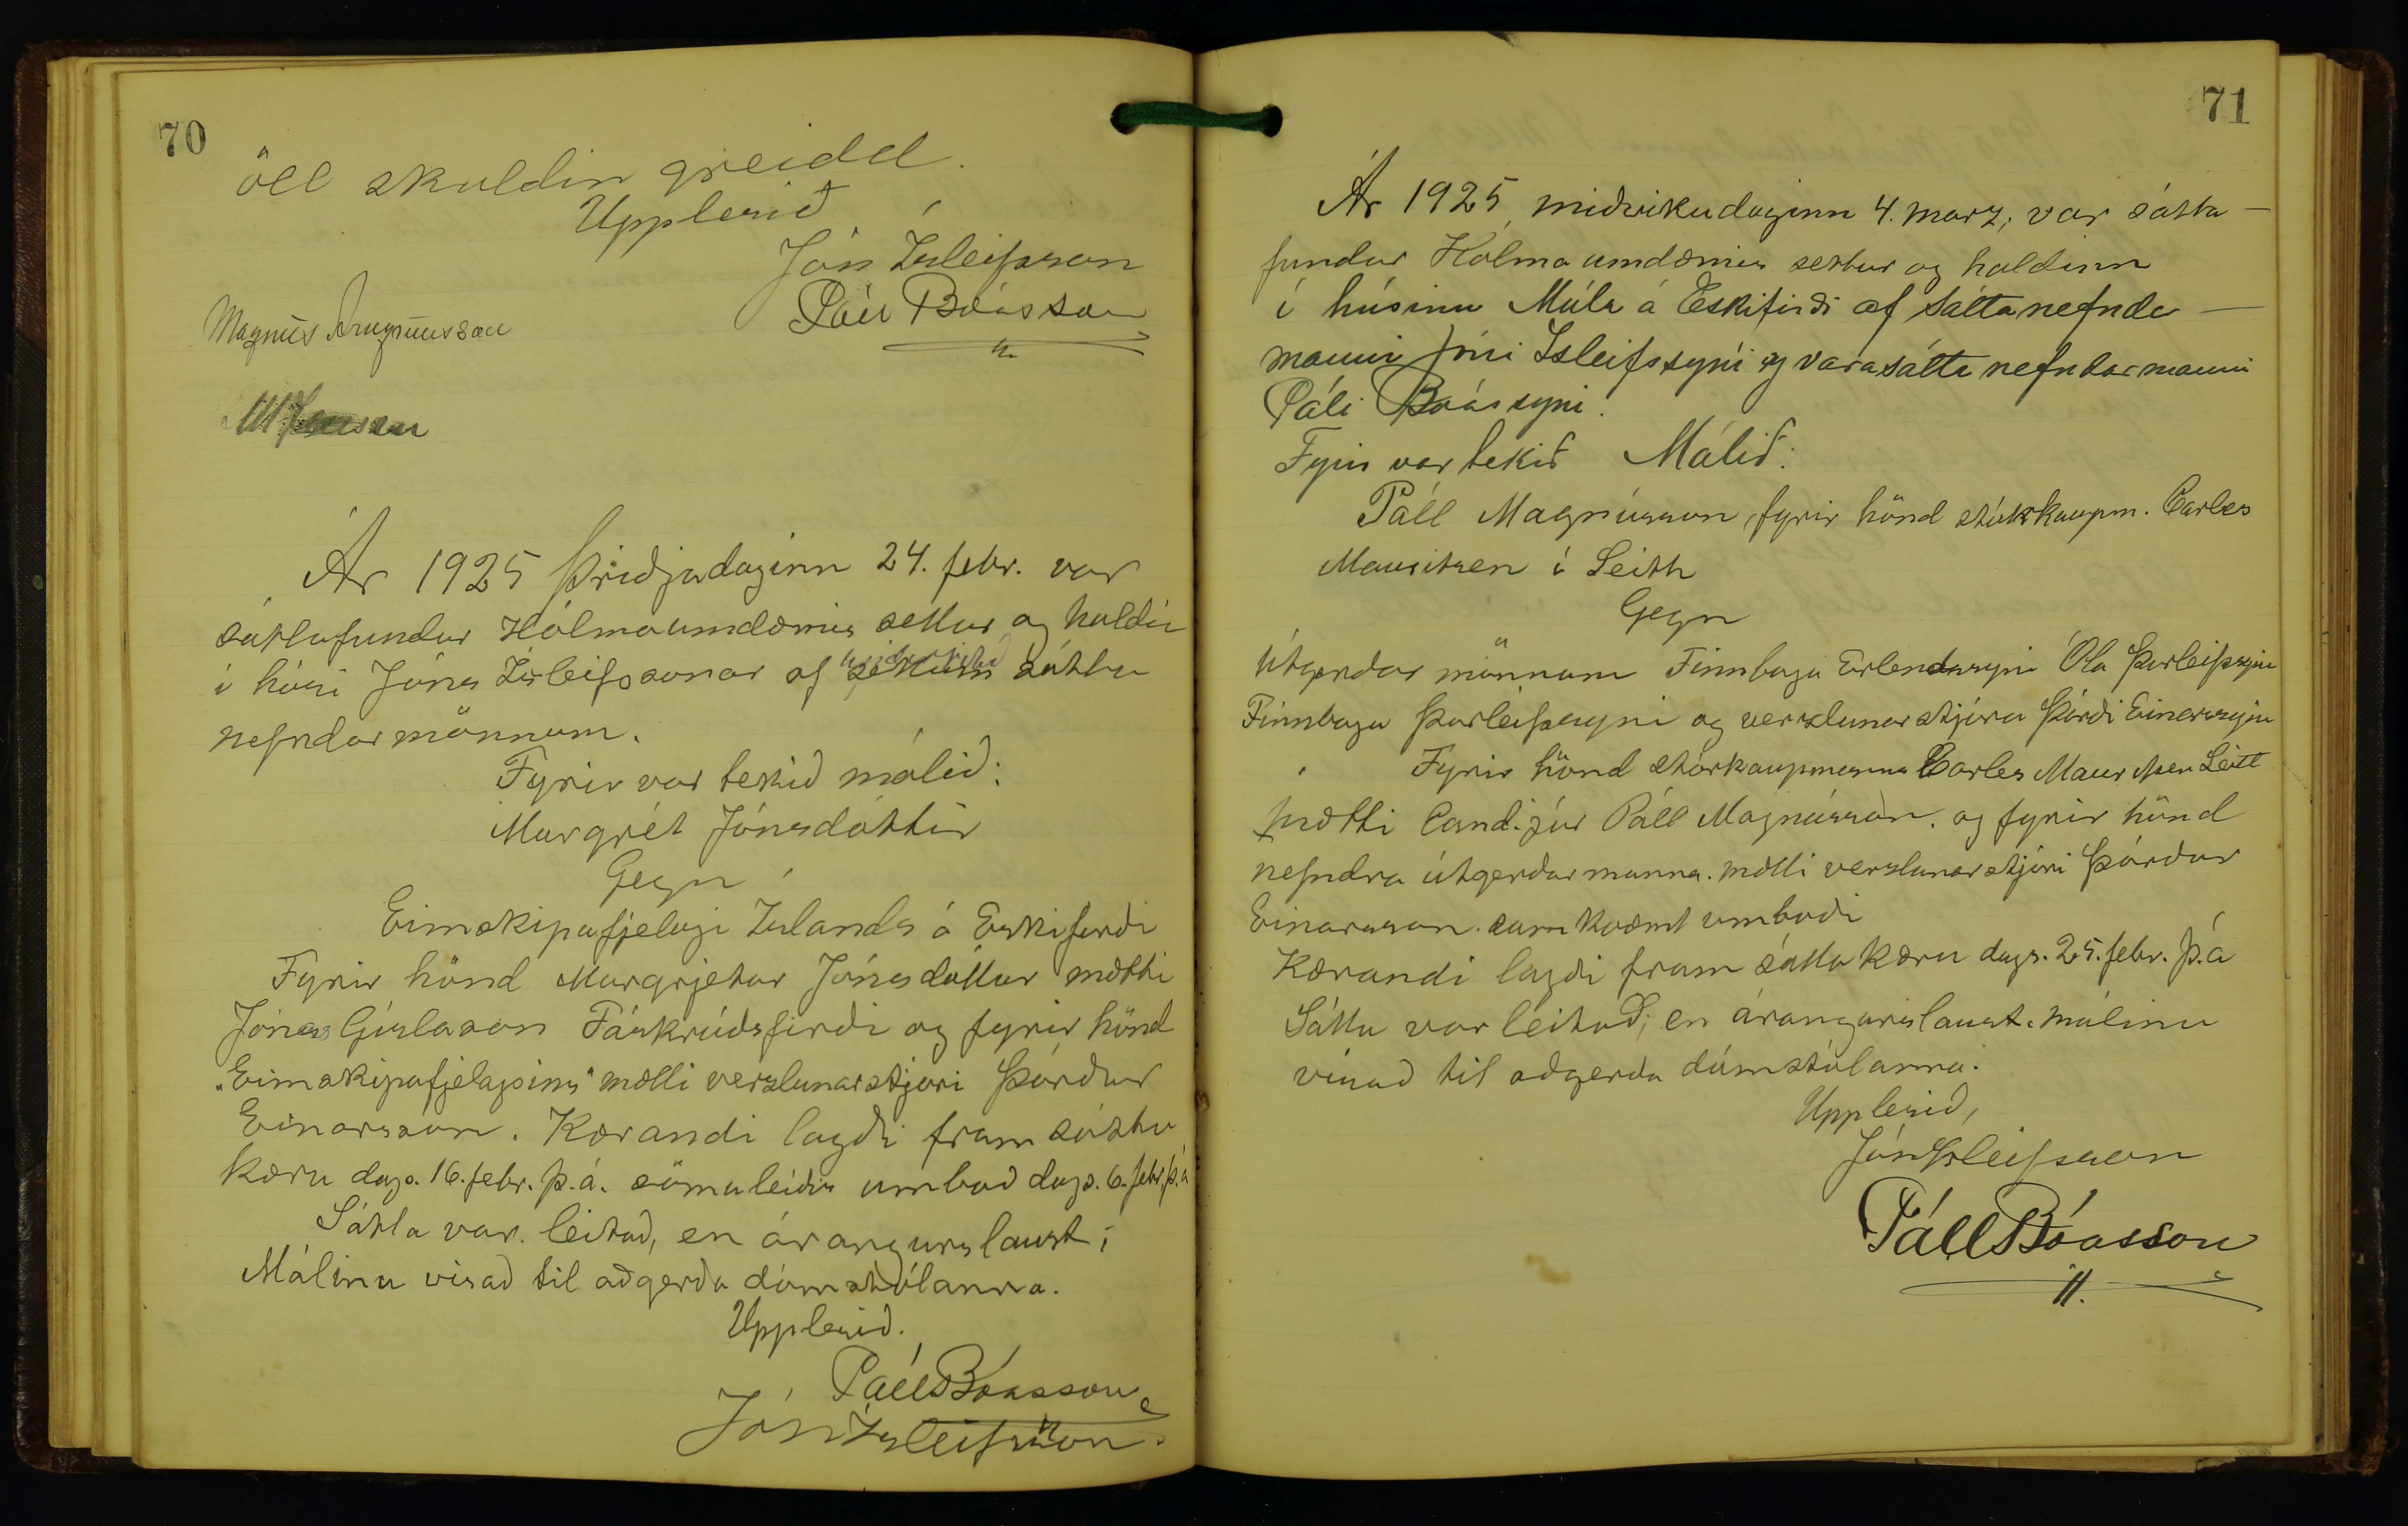 70
öll skuldin greidd.
Upplesið
Jón Ísleifsson
Páll Bóasson
Magnús Arngrímsson
Ár 1925 þriðjudaginn 24. febr. var
sáttafundur Hólmaumdæmis settur og haldin
í húsi Jóns Ísleifssonar af sátta
nefndarmönnum.
Fyrir var tekið málið:
Margrét Jónsdóttir
Gegn
Eimskipafjelagi Íslands á Eskifirði
Fyrir hönd Margrjetar Jónsdóttur mætti
Jónas Gíslason Fáskrúðsfirði og fyrir hönd
„Eimskipafjelagsins" mætti verslunarstjóri Þórður
Einarsson. Kærandi lagði fram sátta
kæru dags. 16. febr. þ.á. sömuleiðis umboð dags. 6. febr. þ.á
Sátta var leitað, en árangurslaust;
Málinu vísað til aðgerða dómstólanna.
Upplesið.
Páll Bóasson
Jón Ísleifsson.
71
Ár 1925, miðvikudaginn 4. marz, var sátta-
fundur Hólmaumdæmis settur og haldinn
í húsinu Múla á Eskifirði af sáttanefnda-
manni Jóni Ísleifssyni og varasátta nefndarmanni
Páli Bóassyni.
Fyrir var tekið Málið:
Páll Magnússon, fyrir hönd stórkaupm. Carles
Mauritzen í Leith
Gegn
Útgerðar mönnum Finnboga Erlendssyni Óla Þorleifssyni
Finnboga Þorleifssyni og verzlunarstjóra Þórði Einarssyni
Fyrir hönd stórkaupmanns Carles Mauritzen Leith
mætti Cand. jur Páll Magnússon, og fyrir hönd
nefndra útgerðarmanna. mætti verslunarstjóri Þórður
Einarsson. samkvæmt umboði
Kærandi lagði fram sátta kæru dags. 25. febr. þ.á
Sátta var leitað; en árangurslaust. málinu
vísað til aðgerða dómstólanna.
Upplesið,
Jón Ísleifsson
Páll Bóasson